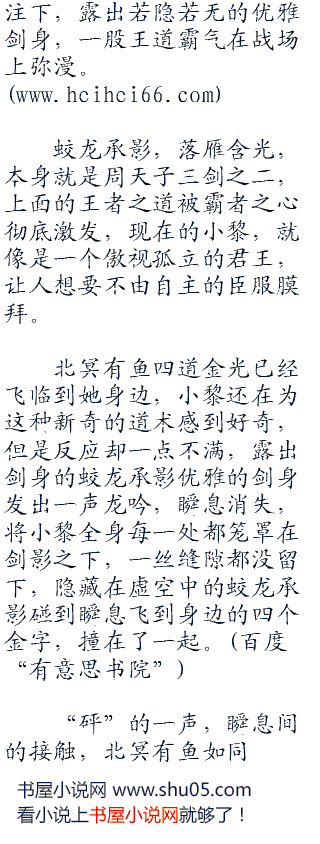 注下，露出若隐若无的优雅
剑身，一股王道霸气在战场
上弥漫。
(www.hcihci66.com)
蛟龙承影，落雁含光，
本身就是周天子三剑之二，
上面的王者之道被霸者之心
彻底激发，现在的小黎，就
像是一个傲视孤立的君王，
让人想要不由自主的臣服膜
拜。
北冥有鱼四道金光已经
飞临到她身边，小黎还在为
这种新奇的道术感到好奇，
但是反应却一点不满，露出
剑身的蛟龙承影优雅的剑身
发出一声龙吟，瞬息消失，
将小黎全身每一处都笼罩在
剑影之下，一丝缝隙都没留
下，隐藏在虚空中的蛟龙承
影碰到瞬息飞到身边的四个
金字，撞在了一起。(百度
“有意思书院”)
“砰”的一声，瞬息间
的接触，北冥有鱼如同
书屋小说网 www.shu05.com
看小说上书屋小说网就够了！